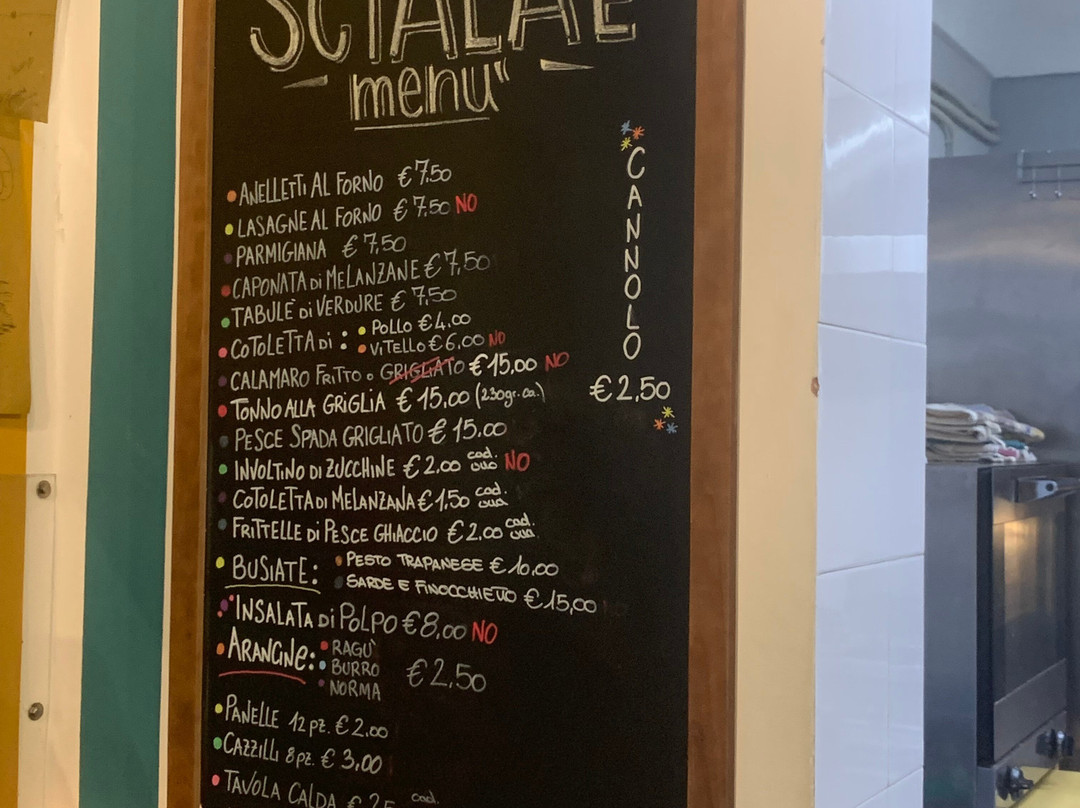 SCIALAE
menu
ANELLETTI AL FORNO €7,50
LASAGNE AL FORNO €7,50 NO
PARMIGIANA €7,50
CAPONATA di MELANZANE €7,50
TABULÈ di VERDURE €7,50
COTOLETTA di : POLLO €4,00
VITELLO €6,00 NO
CALAMARO FRITTO o GRIGLIATO €15,00 NO
TONNO ALLA GRIGLIA €15,00 (230gr. ca.)
PESCE SPADA GRIGLIATO €15,00
INVOLTINO DI ZUCCHINE €2,00 cad. uno NO
COTOLETTA DI MELANZANA €1,50 cad. una
FRITTELLE di PESCE GHIACCIO €2,00 cad. una
BUSIATE: PESTO TRAPANESE €10,00
SARDE E FINOCCHIETTO €15,00
INSALATA di POLPO €8,00 NO
ARANCINE: RAGÙ
BURRO €2,50
NORMA
PANELLE 12 pz. €2,00
CAZZILLI 8 pz. €3,00
TAVOLA CALDA € 2,5 cad.
CANNOLO
€2,50